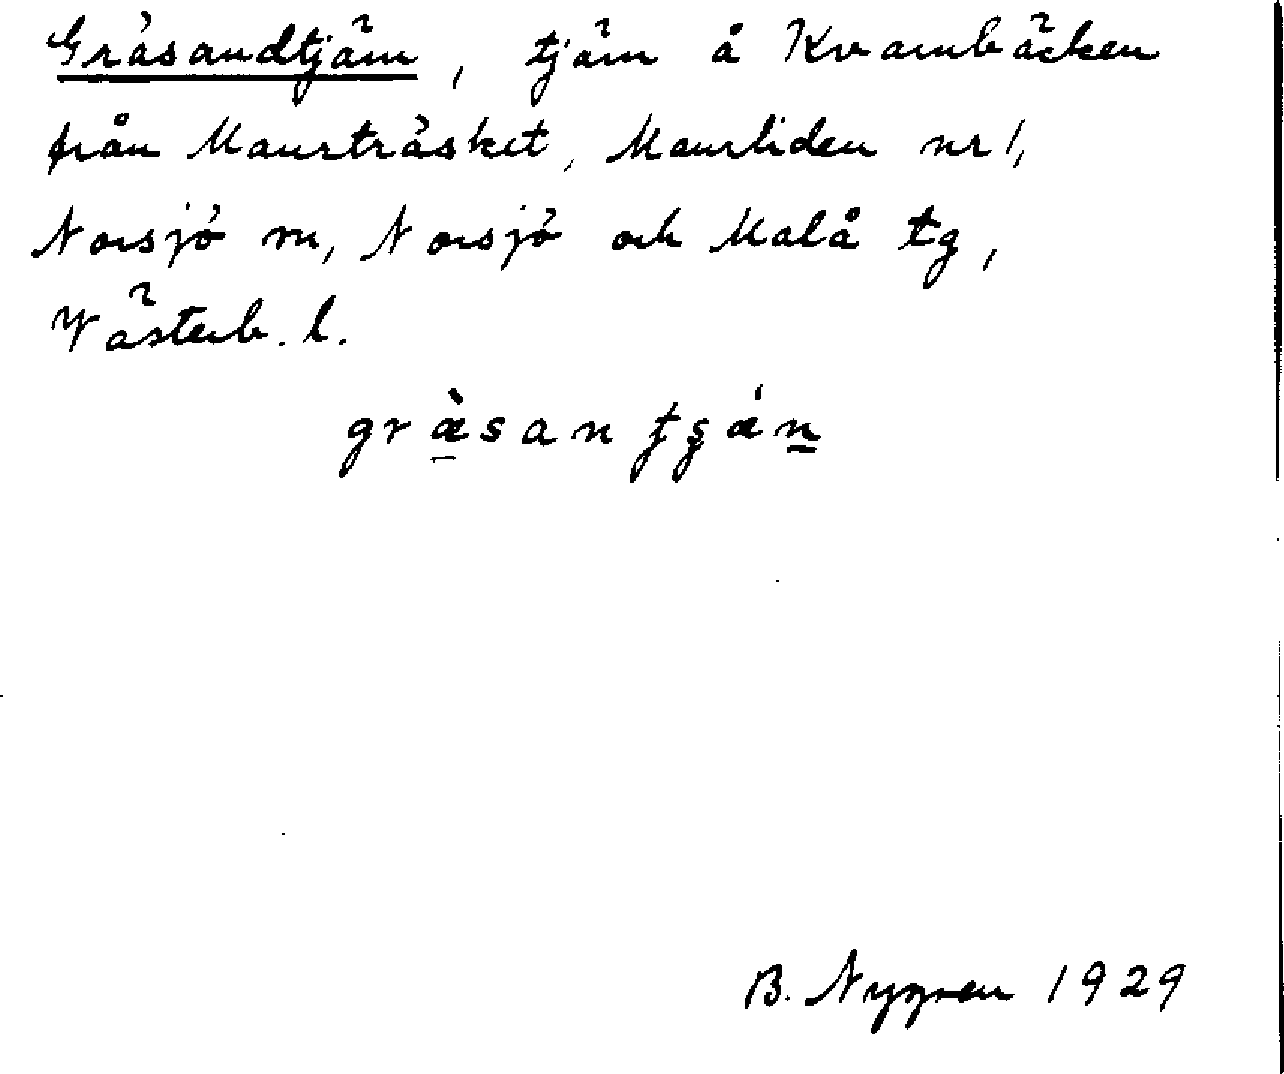 Gräsandtjärn, tjärn å Kvarnbäcken
från Maurträsket, Maurliden nr 1,
Norsjö sn, Norsjö och Malå tg,
Västerb. l.
B. Nygren 1929